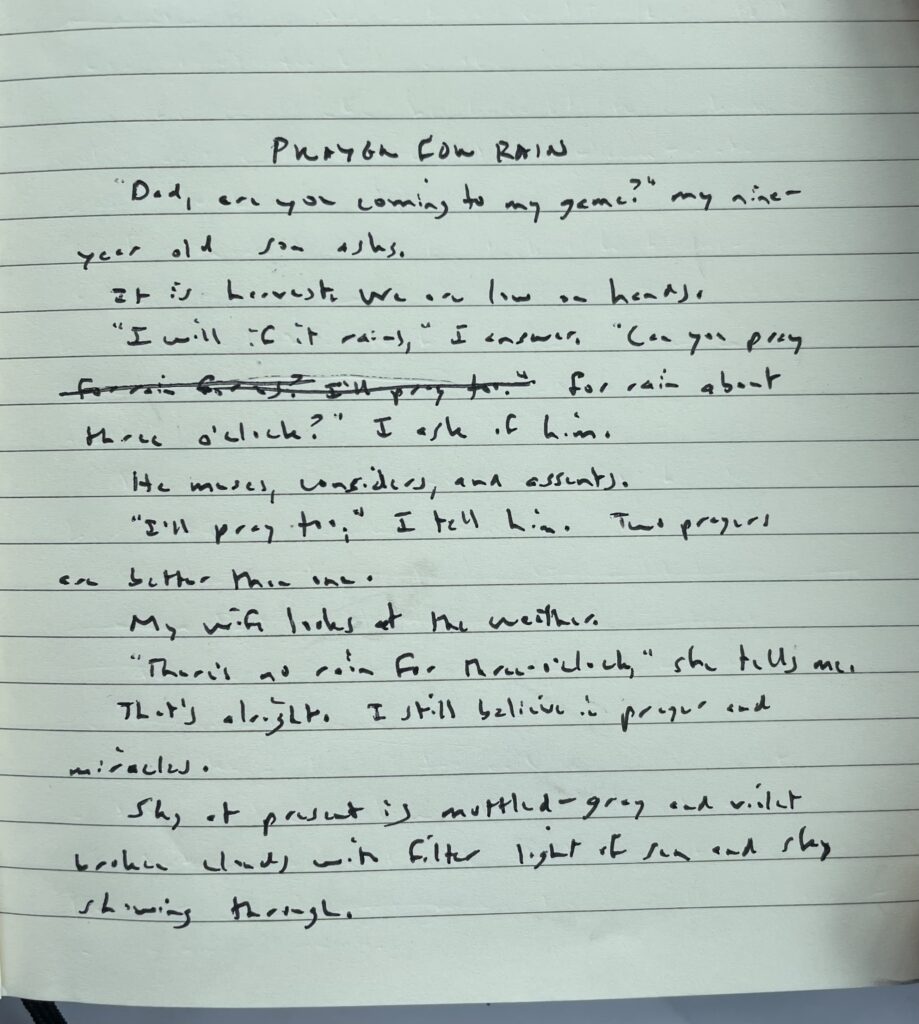 PRAYER FOR RAIN
"Dad, are you coming to my game?" my nine-
year old son asks.
It is harvest. We are low on hands.
"I will if it rains," I answer. "Can you pray
for rain for us? I'll pray too." for rain about
three o'clock?" I ask of him.
He muses, considers, and assents.
"I'll pray too," I tell him. Two prayers
are better than one.
My wife looks at the weather.
"There's no rain for three-o'clock," she tells me.
That's alright. I still believe in prayer and
miracles.
Sky at present is mottled-gray and violet
broken clouds with filter light of sun and sky
showing through.